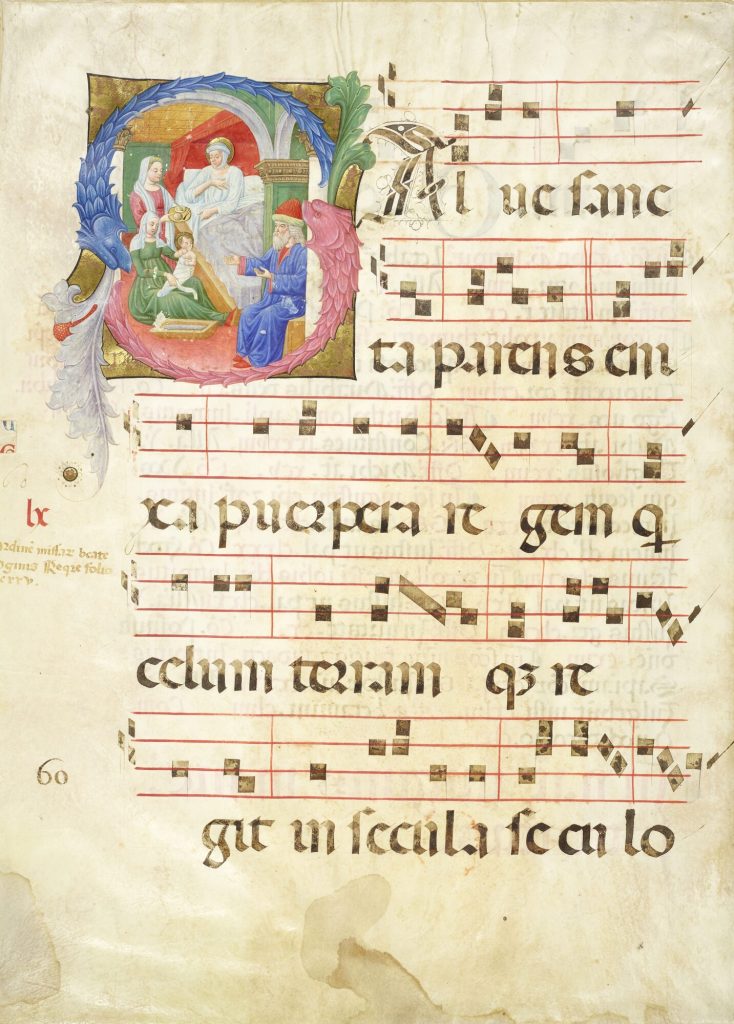 SAl ue sanc
ta parens eni
xa puerpera re gem q̄
lx
celum terram qꝫ re
60
git in secula seculo